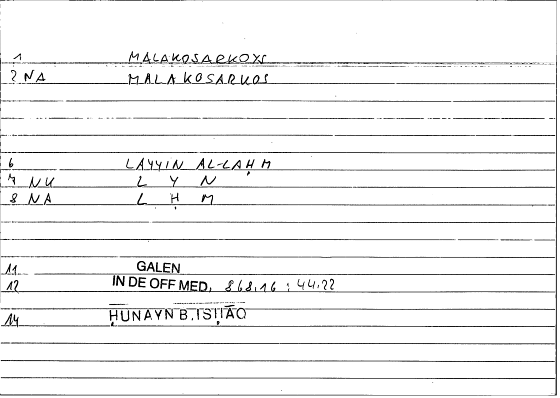 1 MALAKOSARKOXS
2 NA MALAKOSARKOS
6 LAYYIN AL-LAḤM
7 NU L Y N
8 NA L Ḥ M
11 GALEN
12 IN DE OFF MED, 868,16 : 44.22
14 ḤUNAYN B. ISḤĀQ